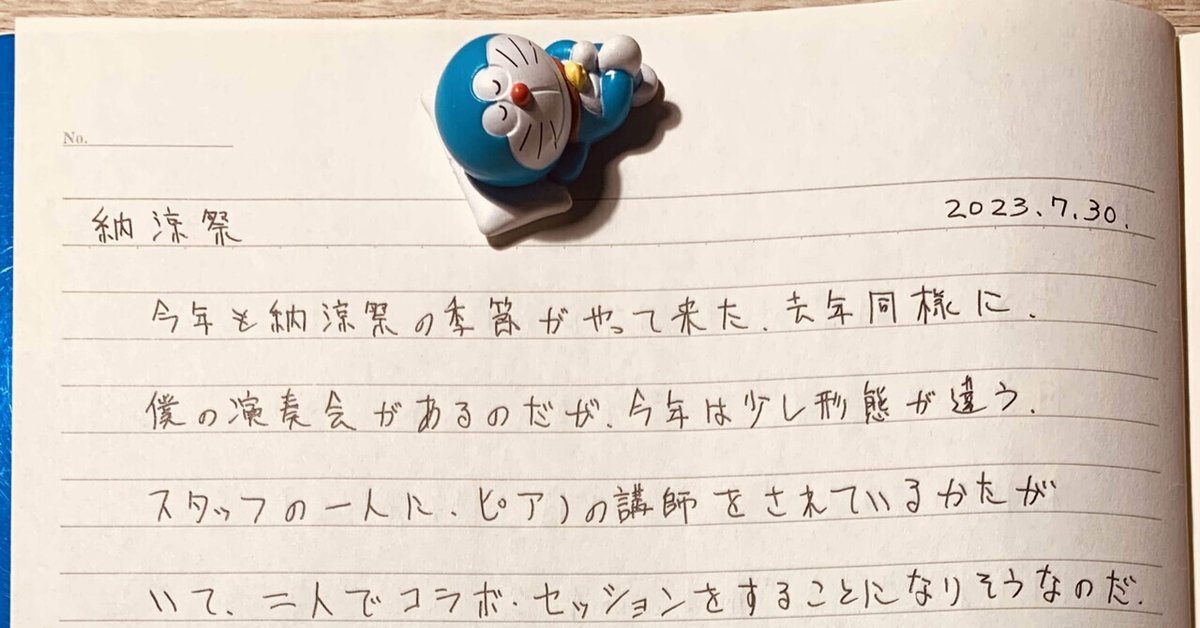 No.
納涼祭 2023.7.30.
今年も納涼祭の季節がやって来た。去年同様に、
僕の演奏会があるのだが、今年は少し形態が違う。
スタッフの一人に、ピアノの講師をされているかたが
いて、二人でコラボ・セッションをすることになりそうなのだ。